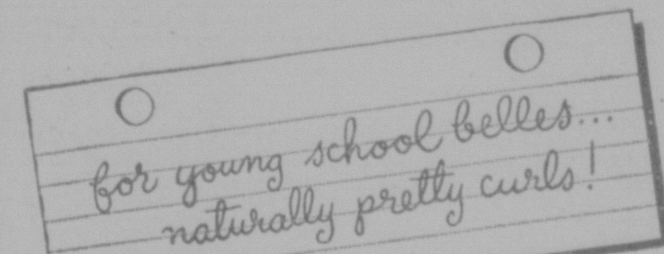 for young school belles...
naturally pretty curls!